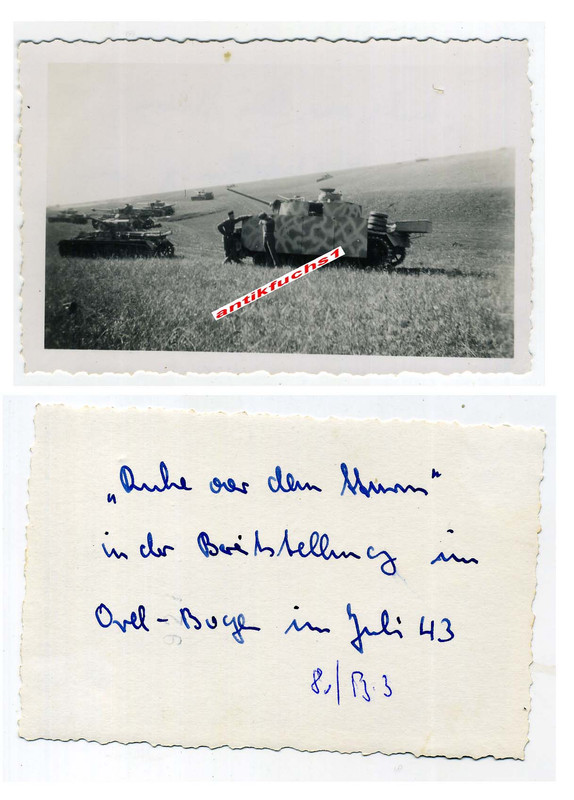 antikfuchs1
„Ruhe vor dem Sturm“
in der Bereitstellung im
Orel-Bogen im Juli 43